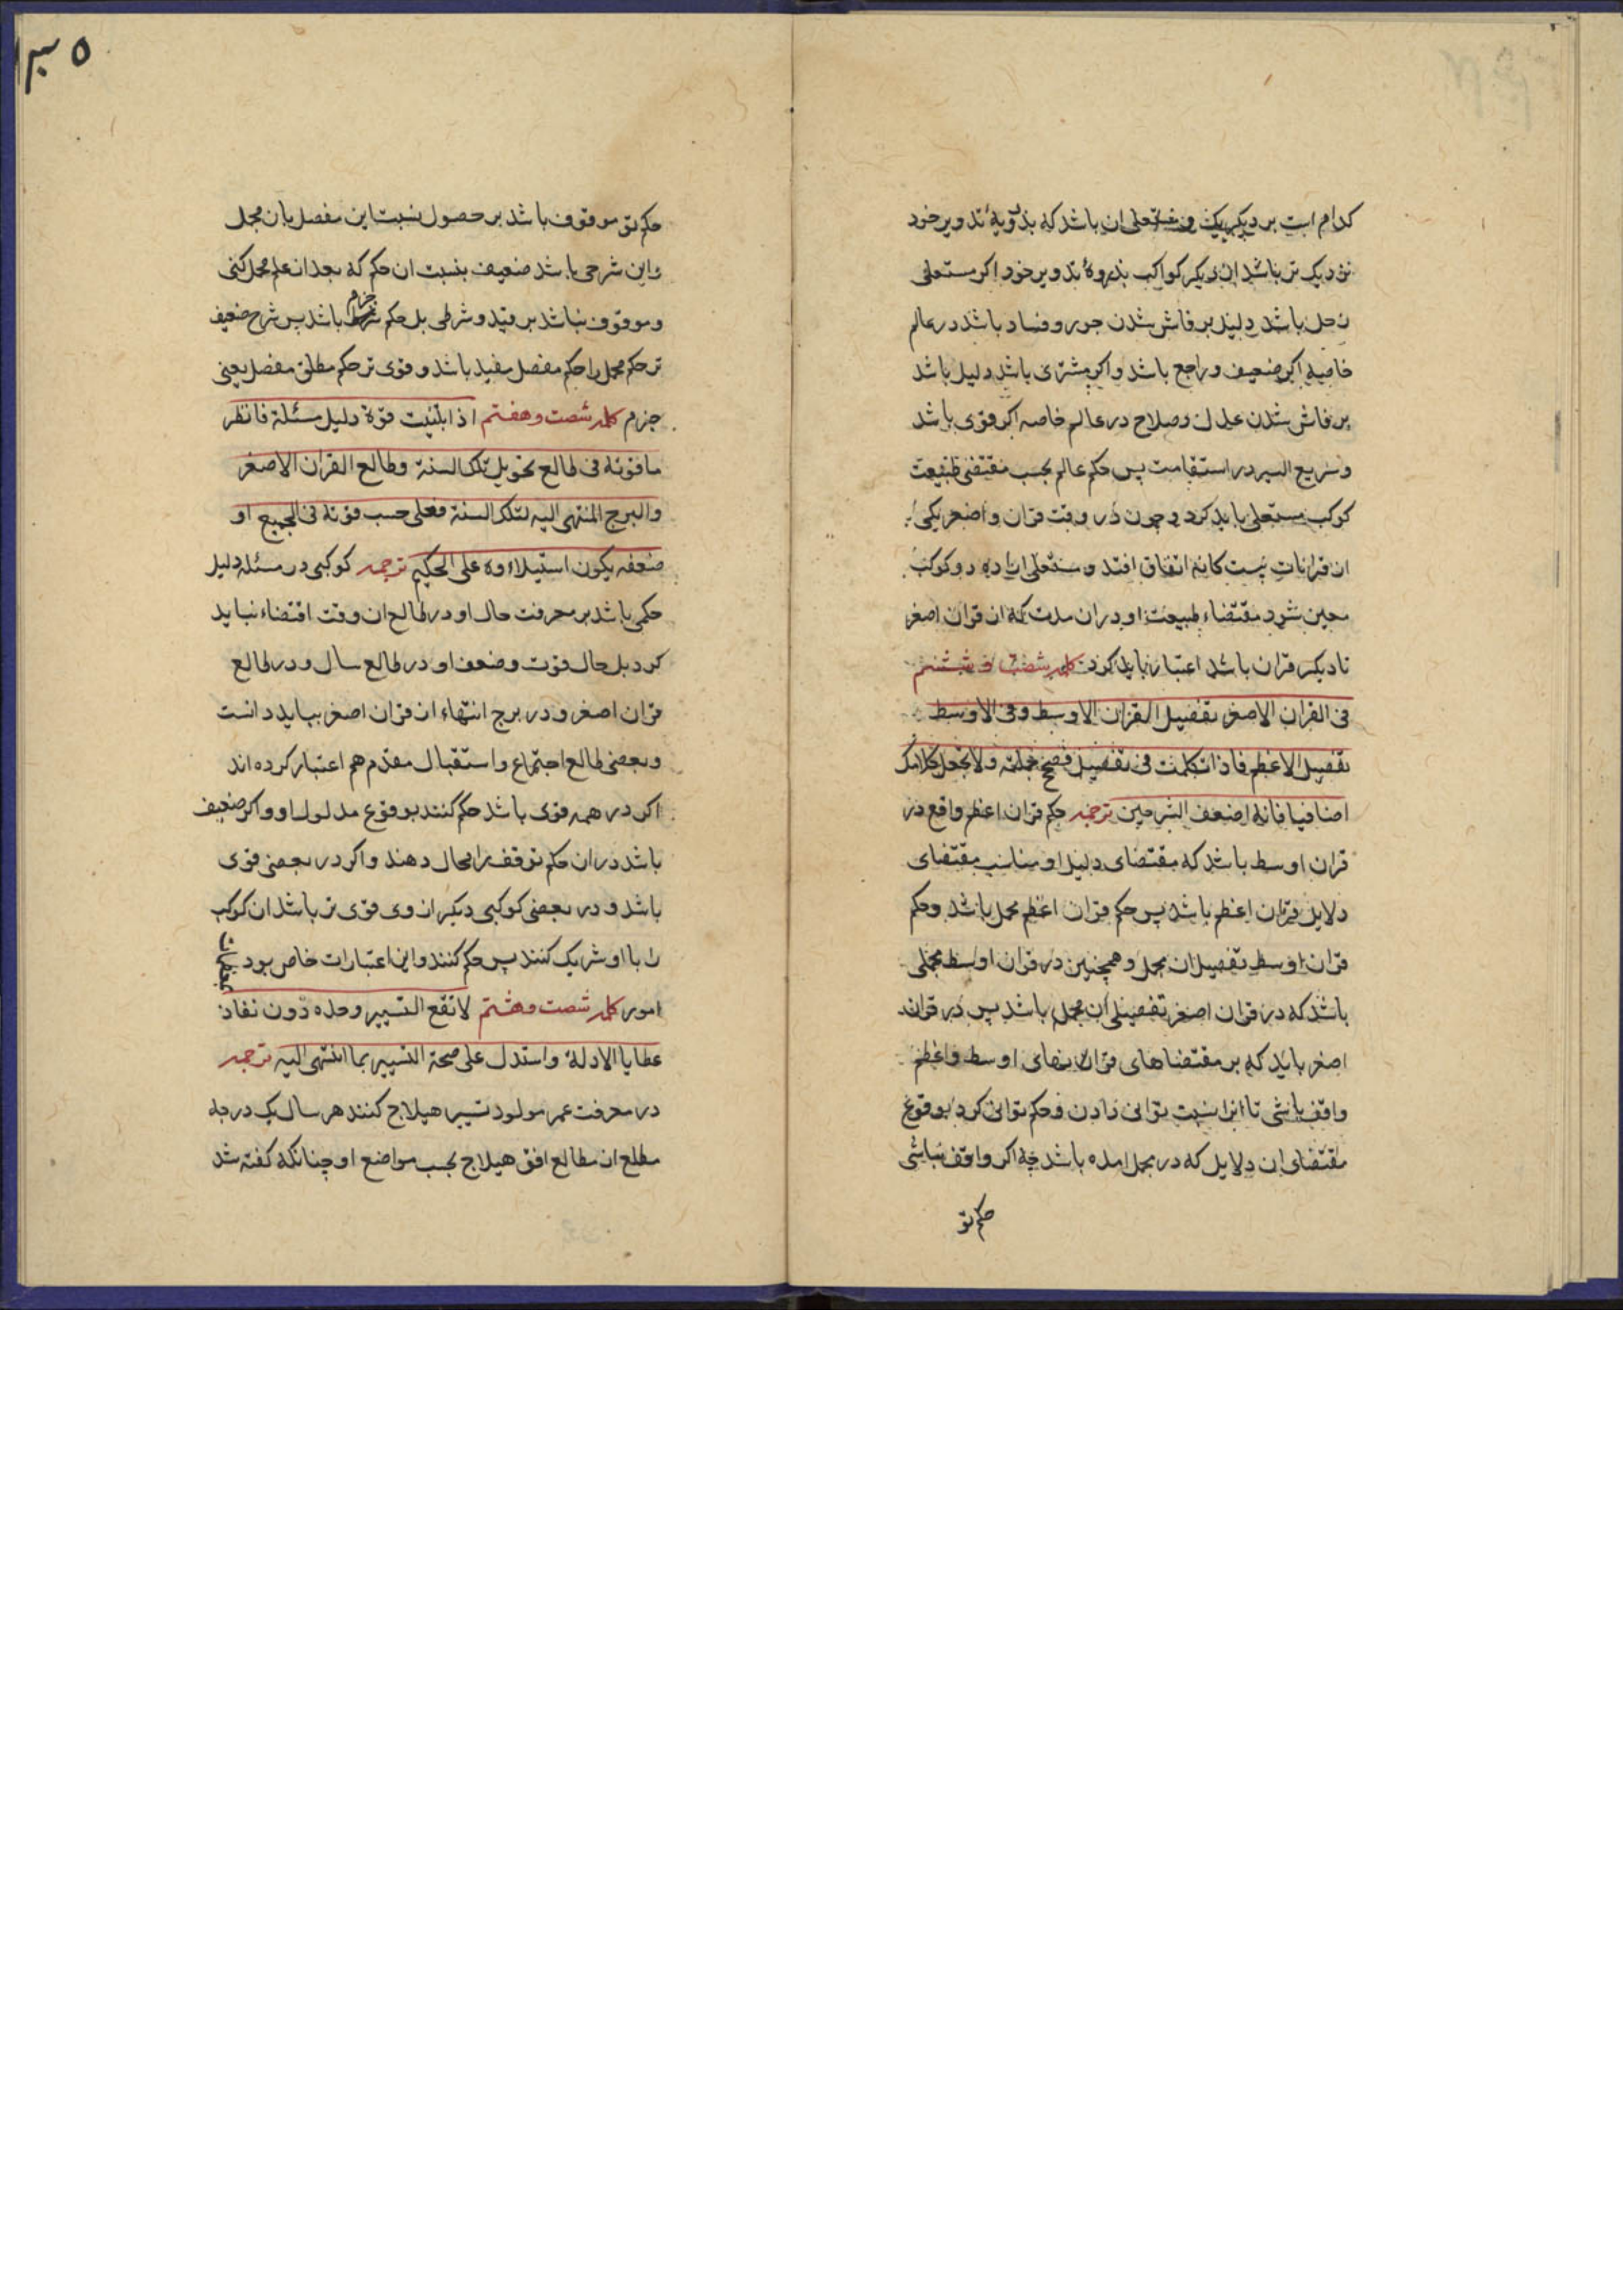 کدام است بر دیگر یک و مستعلی ان باشد که بذروهٔ تدویر خود
نزدیک تر باشد از دیگر کواکب بذروهٔ تدویر خود اکر مستعلی
زحل باشد دلیل بر فاش شدن جور و فساد باشد در عالم
خاصه اکر ضعیف و راجع باشد و اکر مشتری باشد دلیل باشد
بر فاش شدن عدل و صلاح در عالم خاصه اکر قوی باشد
و سریع السیر در استقامت پس حکم عالم بحسب مقتضی طبیعت
کوکب مستعلی باید کرد و چون در وقت قران واضعر یکی
از قرانات بیست کانه اتفاق افتد و مستعلی از دو کوکب
معین شود مقتضاء طبیعت او در ان مدت که از قران اصغر
تا دیکر قران باشد اعتبار باید کرد کلمه شصت و ششم
فی القران الاصغر تفصیل القران الاوسط وفی الاوسط
تفصیل الاعظم فاذا تکلمت فی تفصیل فصحح جملته ولا تجعل کلامک
اضافیا فانه اضعف الشرحین ترجمه حکم قران اعظم واقع در
قران اوسط باشد که مقتضای دلیل او مناسب مقتضای
دلایل قران اعظم باشد پس حکم قران اعظم مجمل باشد و حکم
قران اوسط تفصیل ان مجمل و همچنین در قران اوسط مجملی
باشد که در قران اصغر تفصیل ان مجمل باشد پس در قران
اصغر باید که بر مقتضاهای قرانهای اوسط و اعظم
واقف باشی تا انرا نسبت توانی دادن و حکم توانی کرد بوقوع
مقتضای ان دلایل که در مجمل امده باشد چه اکر واقف نباشی
حکم تو
۱۳۵
حکم تو موقوف باشد بر حصول نسبت این مفصل بان مجمل
و این شرحی باشد ضعیف بنسبت ان حکم که بعد از علم مجمل کنی
و موقوف نباشد بر قید و شرطی بل حکم جزم باشد پس شرح ضعیف
تر حکم مجمل را حکم مفصل مقید باشد و قوی تر حکم مطلق مفصل یعنی
جزم کلمه شصت و هفتم اذا ابتنیت قوة دلیل مسئلة فانظر
ما قوته فی طالع تحویل تلک السنة وطالع القران الاصغر
والبرج المنتهی الیه لتلک السنة فعلی حسب قوته فی الجمیع او
ضعفه یکون استیلاءوه علی الحکم ترجمه کوکبی در مسئله دلیل
حکمی باشد بر معرفت حال او در طالع ان وقت اقتضاء نباید
کرد بل حال قوت و ضعف او در طالع سال و در طالع
قران اصغر و در برج انتهاء از قران اصغر بباید دانست
و بعضی طالع اجتماع و استقبال مقدم هم اعتبار کرده اند
اکر در همه قوی باشد حکم کنند بوقوع مدلول او و اکر ضعیف
باشد در ان حکم توقف را مجال دهند و اکر در بعضی قوی
باشد و در بعضی کوکبی دیکر از وی قوی تر باشد ان کوکب
را با او شریک کنند پس حکم کنند و این اعتبارات خاص بود
امور کلمه شصت و هشتم لا تقع التسییر وحده دون نفاذ
عطایا الادلة واستدل علی صحة التسییر بما انتهی الیه ترجمه
در معرفت عمر مولود تسییر هیلاج کنند هر سال یک درجه
مطلع از مطالع افق هیلاج بحسب مواضع او چنانکه کفته شد